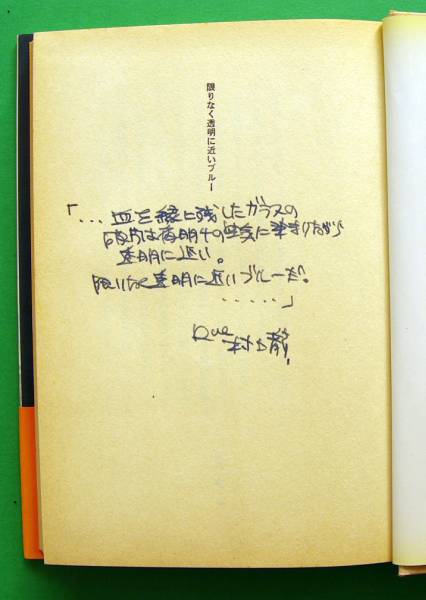 限りなく透明に近いブルー
「...血を縁に残したガラスの
破片は夜明けの空気に染まりながら
透明に近い。
限りなく透明に近いブルーだ。
.....」
村上龍